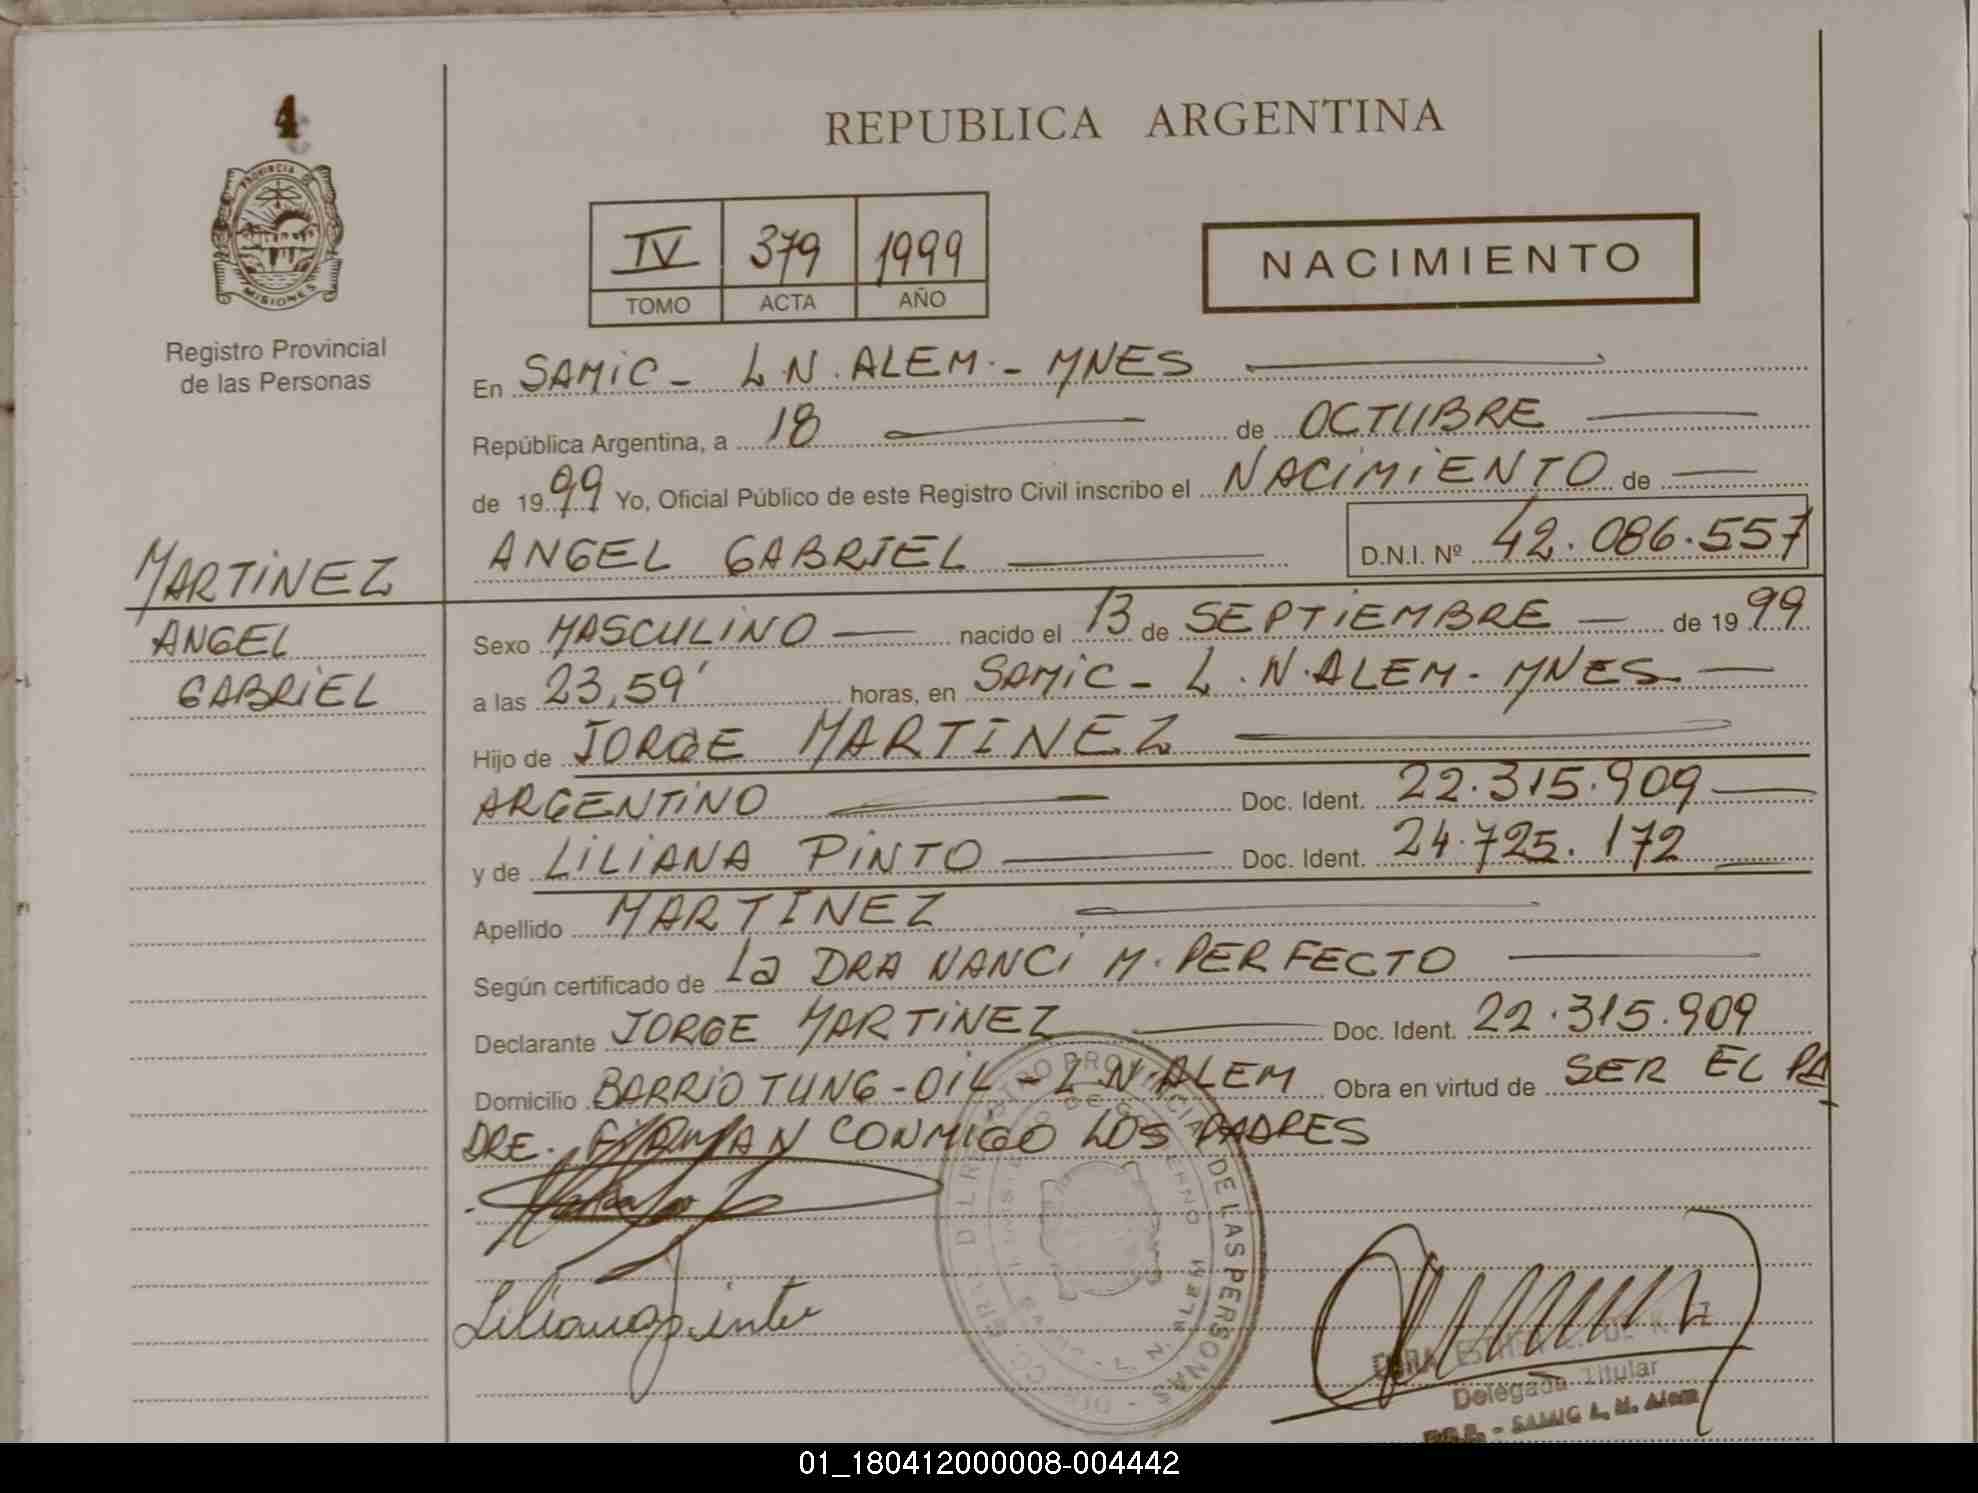 4
PROVINCIA DE
MISIONES
Registro Provincial
de las Personas
REPUBLICA ARGENTINA
IV 379 1999
TOMO ACTA AÑO
NACIMIENTO
En SAMIC - L.N. ALEM. - MNES
República Argentina, a 18 de OCTUBRE
de 1999 Yo, Oficial Público de este Registro Civil inscribo el NACIMIENTO de
ANGEL GABRIEL D.N.I. Nº 42.086.557
MARTINEZ
ANGEL
GABRIEL
Sexo MASCULINO nacido el 13 de SEPTIEMBRE de 1999
a las 23,59' horas, en SAMIC - L.N. ALEM - MNES
Hijo de JORGE MARTINEZ
ARGENTINO Doc. Ident. 22.315.909
y de LILIANA PINTO Doc. Ident. 24.725.172
Apellido MARTINEZ
Según certificado de La DRA NANCI M. PERFECTO
Declarante JORGE MARTINEZ Doc. Ident. 22.315.909
Domicilio BARRIO TUNG-OIL - L.N. ALEM Obra en virtud de SER EL PA
DRE. FIRMAN CONMIGO LOS PADRES
Liliana Pinto
PROVINCIAL DE LAS PERSONAS
L. N. ALEM
Delegada Titular
SAMIC L. N. Alem
01_180412000008-004442